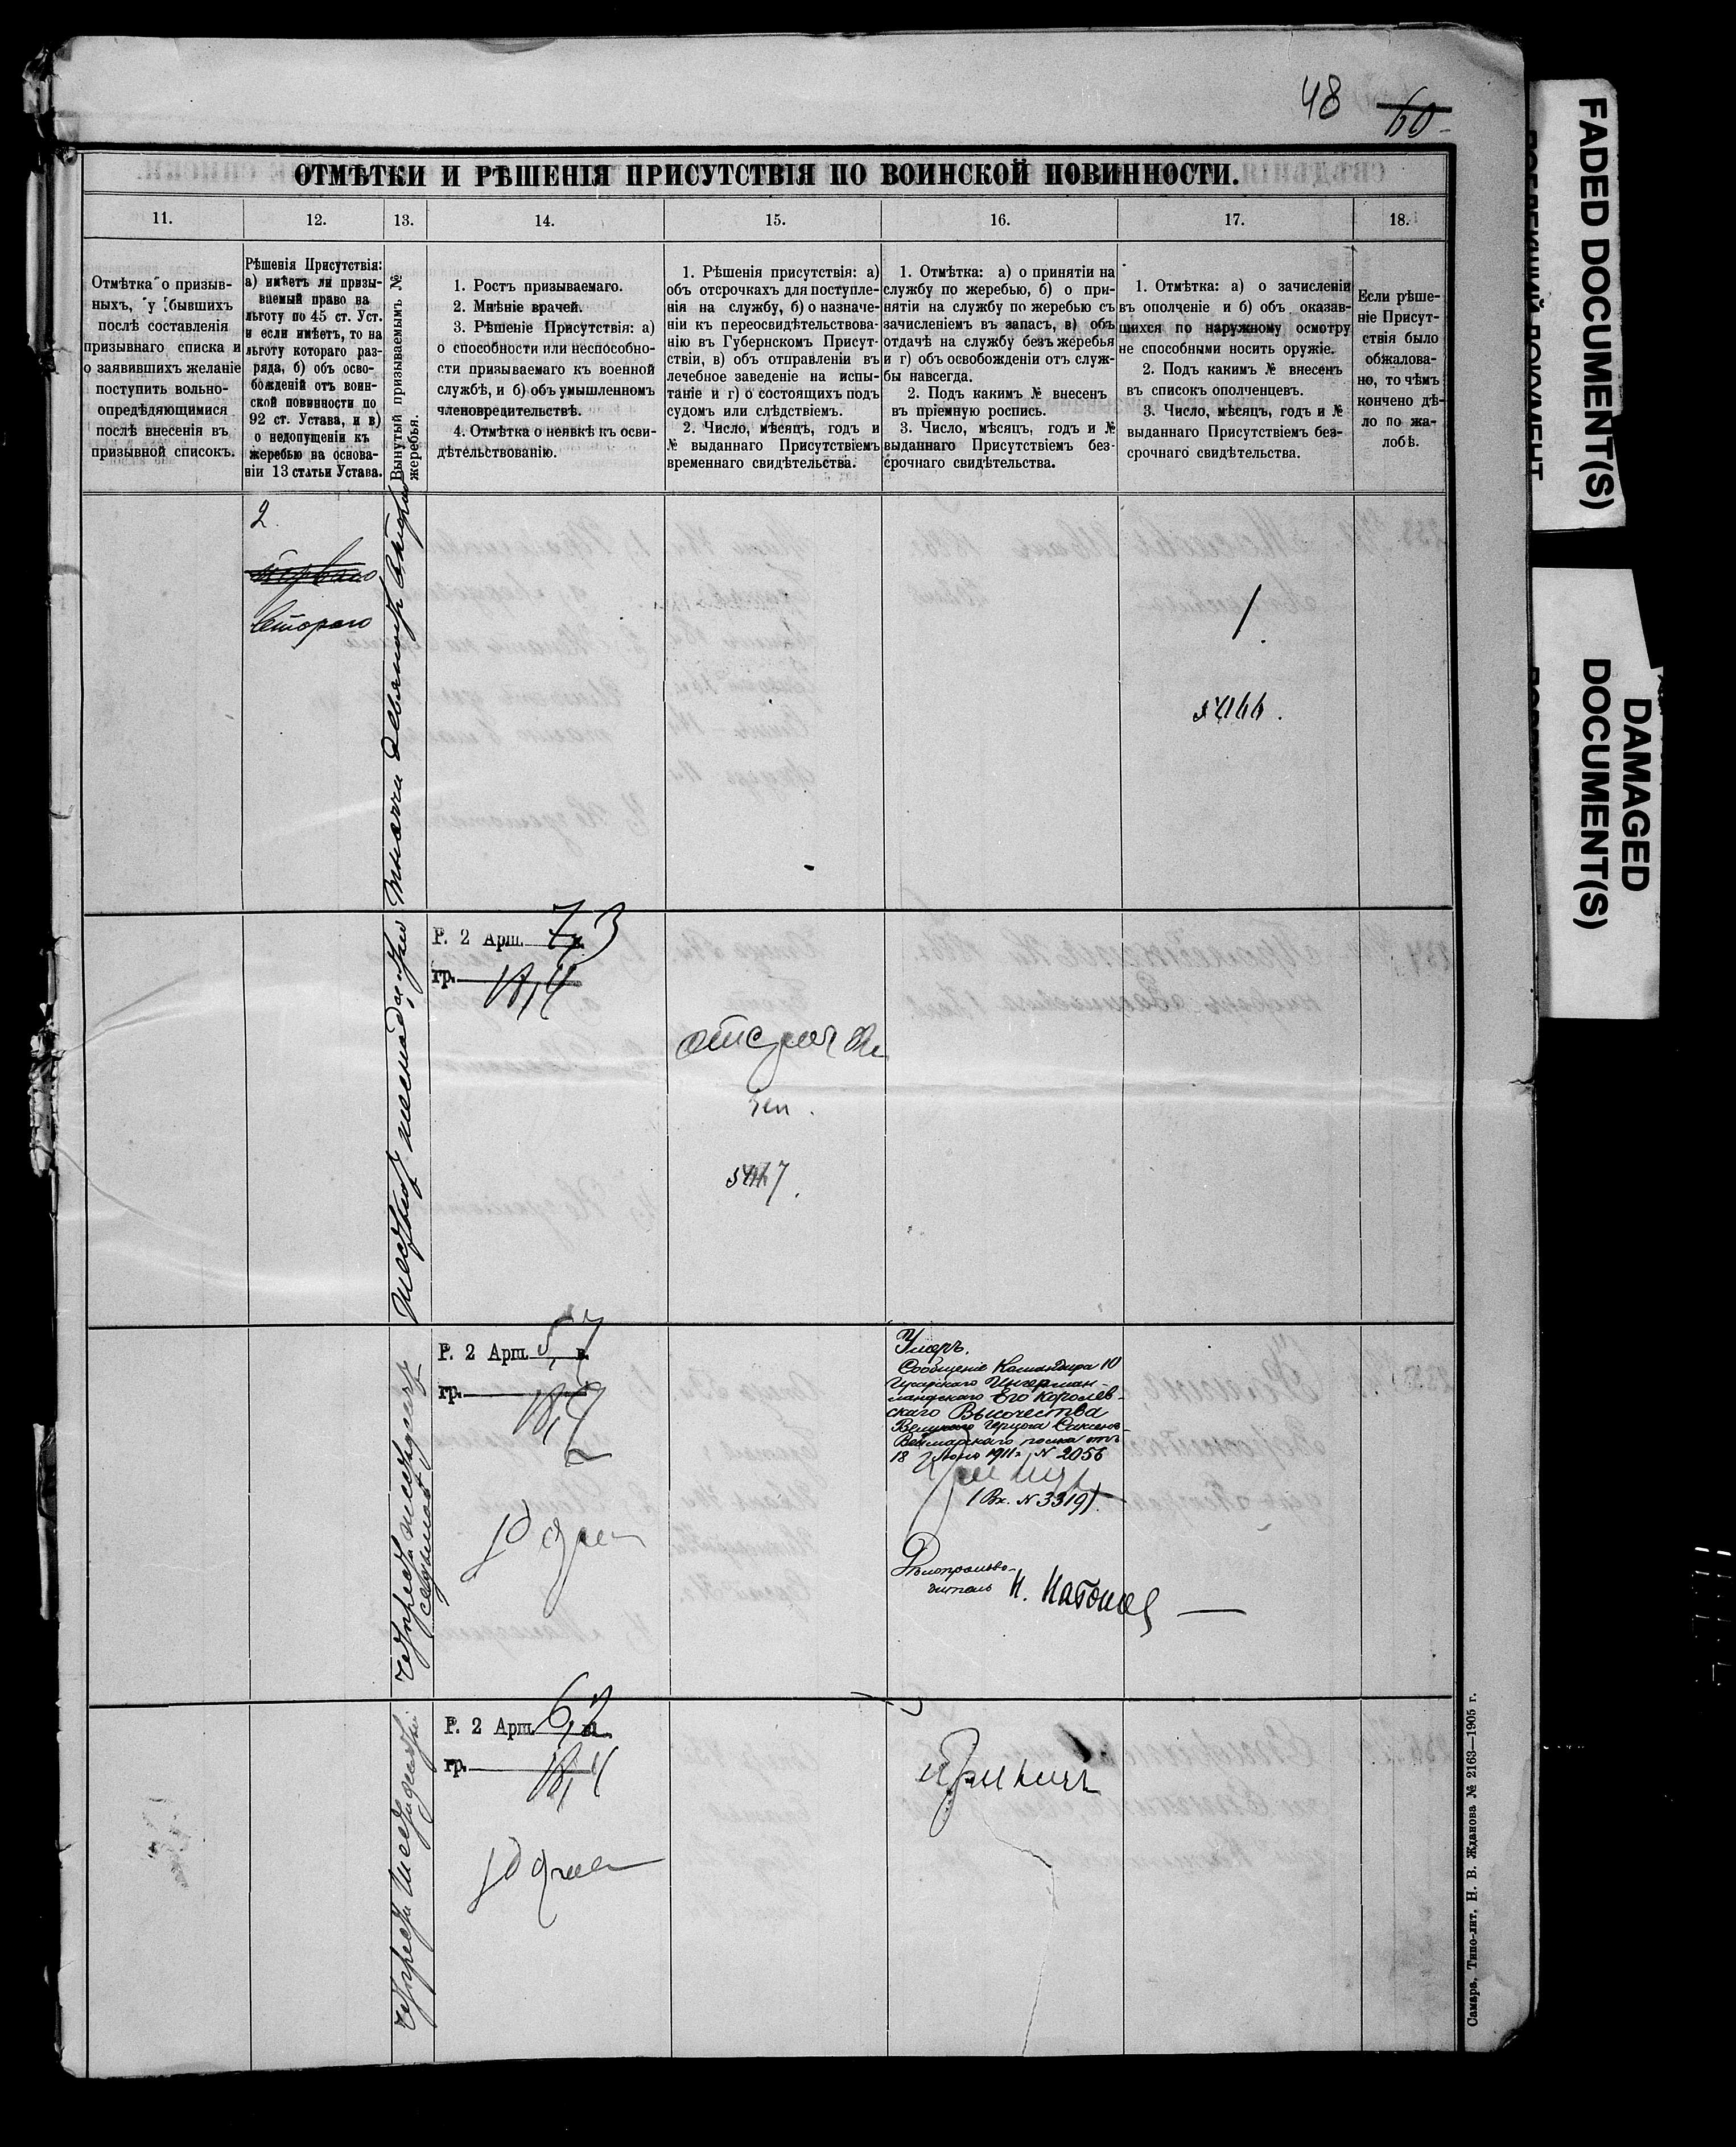 48 60
ОТМѢТКИ И РѢШЕНІЯ ПРИСУТСТВІЯ ПО ВОИНСКОЙ ПОВИННОСТИ.
11.
12.
13.
14.
15.
16.
17.
18.
Отмѣтка о призыв-
ныхъ, у бывшихъ
послѣ составленія
призывнаго списка и
о заявившихъ желаніе
поступить вольно-
опредѣляющимися
послѣ внесенія въ
призывной списокъ.
Рѣшенія Присутствія:
а) имѣетъ ли призы-
ваемый право на
льготу по 45 ст. Уст.
и если имѣетъ, то на
льготу котораго раз-
ряда, б) объ осво-
божденій отъ воин-
ской повинности по
92 ст. Устава, и в)
о недопущеніи къ
жеребью на основа-
ніи 13 статьи Устава.
Вынутый призываемымъ №
жеребья.
1. Ростъ призываемаго.
2. Мнѣніе врачей.
3. Рѣшеніе Присутствія: а)
о способности или неспособно-
сти призываемаго къ военной
службѣ, и б) объ умышленномъ
членовредительствѣ.
4. Отмѣтка о неявкѣ къ осви-
дѣтельствованію.
1. Рѣшенія присутствія: а)
объ отсрочкахъ для поступле-
нія на службу, б) о назначе-
ніи къ переосвидѣтельствова-
нію въ Губернскомъ Присут-
ствіи, в) объ отправленіи въ
лечебное заведеніе на испы-
таніе и г) о состоящихъ подъ
судомъ или слѣдствіемъ.
2. Число, мѣсяцъ, годъ и
№ выданнаго Присутствіемъ
временнаго свидѣтельства.
1. Отмѣтка: а) о принятіи на
службу по жеребью, б) о при-
нятіи на службу по жеребью съ
зачисленіемъ въ запасъ, в) объ
отдачѣ на службу безъ жеребья
и г) объ освобожденіи отъ служ-
бы навсегда.
2. Подъ какимъ № внесенъ
въ пріемную роспись.
3. Число, мѣсяцъ, годъ и №
выданнаго Присутствіемъ без-
срочнаго свидѣтельства.
1. Отмѣтка: а) о зачисленіи
въ ополченіе и б) объ оказав-
шихся по наружному осмотру
не способными носить оружіе.
2. Подъ какимъ № внесенъ
въ списокъ ополченцевъ.
3. Число, мѣсяцъ, годъ и №
выданнаго Присутствіемъ без-
срочнаго свидѣтельства.
Если рѣше-
ніе Присут-
ствія было
обжалова-
но, то чѣмъ
кончено дѣ-
ло по жа-
лобѣ.
2
перваго
втораго
1
Р. 2 Арш. 7,3
гр. 18,4
Р. 2 Арш. 5,7 в.
гр.
годен
Умеръ.
Сообщеніе Командира 10
Гусарскаго Ингерман-
ландскаго Его Королев-
скаго Высочества
Великаго Герцога Саксенъ-
Веймарскаго полка отъ
18 Іюня 1911 г. № 2056
принятъ
(Вх. № 3319).
Дѣлопроизво-
дитель
Р. 2 Арш. 6,2 в.
гр.
годен
принятъ
Самара, Типо-лит. Н. В. Жданова № 2163—1905 г.
FADED DOCUMENT(S)
DAMAGED
DOCUMENT(S)